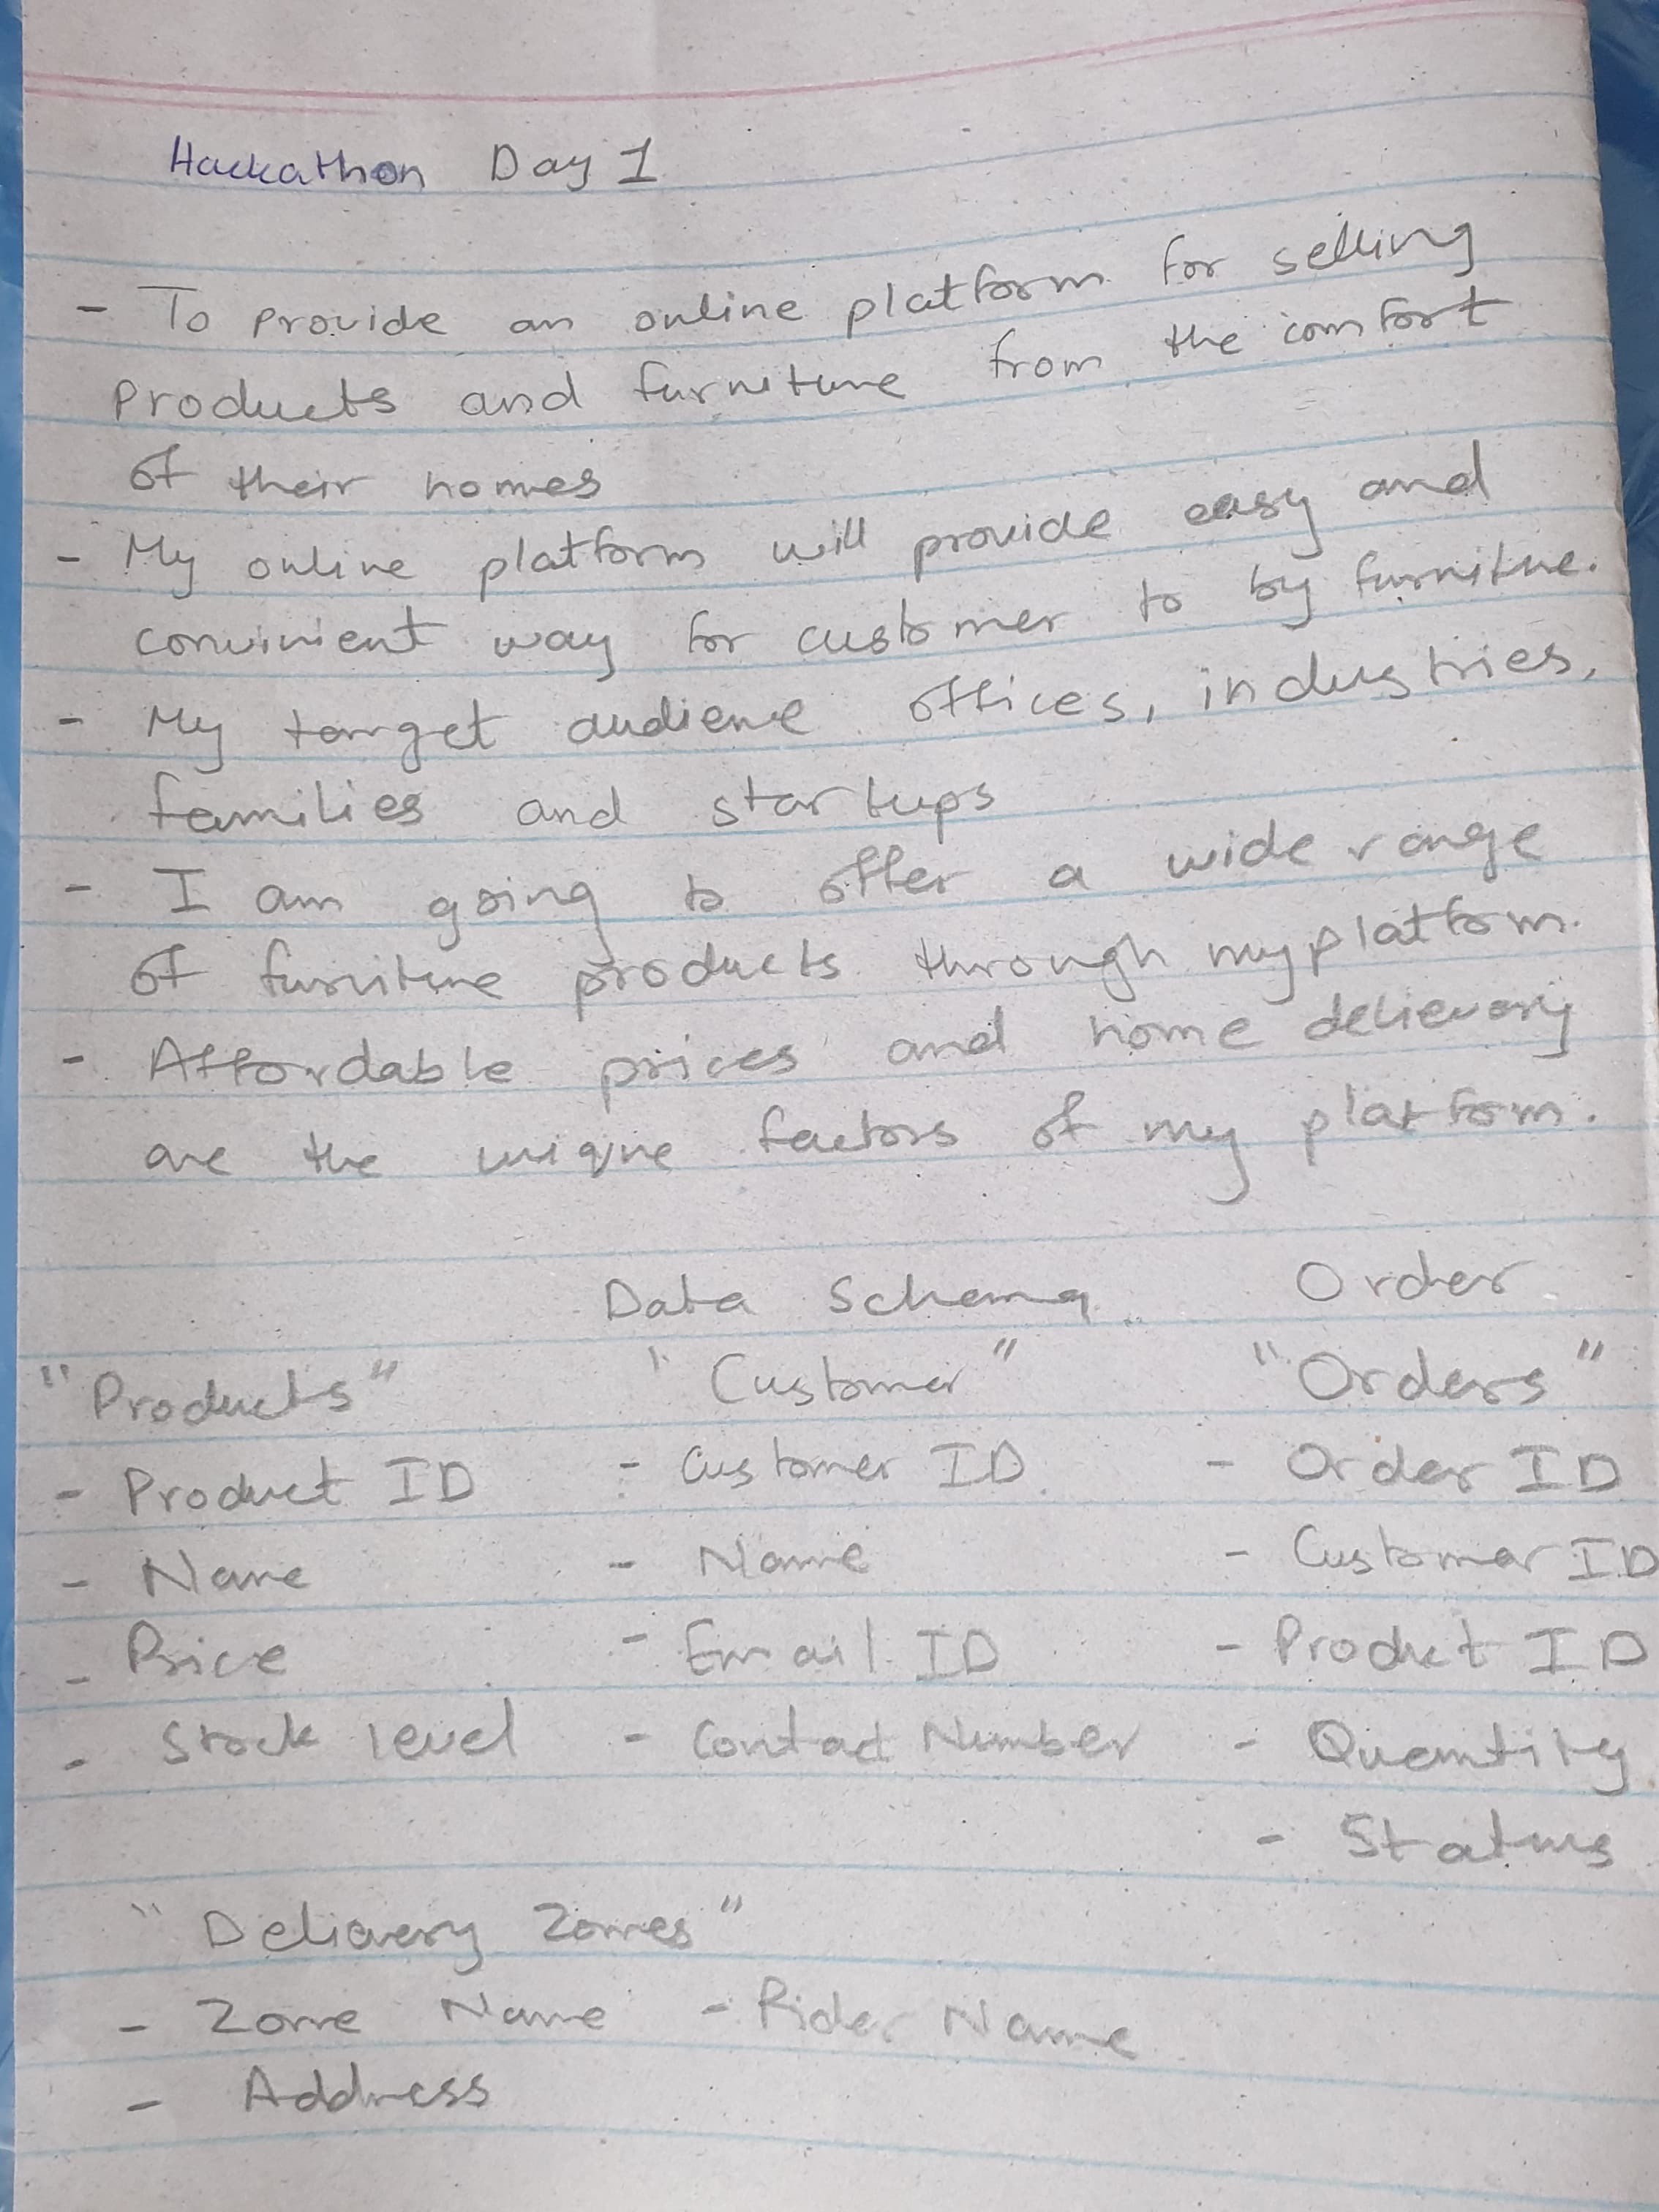 Hackathon Day 1
- To provide an online platform for selling
products and furniture from the comfort
of their homes
- My online platform will provide easy and
convinient way for customer to by furniture.
- My target audience offices, industries,
families and startups
- I am going to offer a wide range
of furniture products through my platform.
- Affordable prices and home delievary
are the unique factors of my platform.
Data Schema Order
"Products" "Customer" "Orders"
- Product ID - Customer ID - Order ID
- Name - Name - Customer ID
- Price - Email ID - Product ID
- Stock level - Contact Number - Quantity
- Status
"Delivery Zones"
- Zone Name - Rider Name
- Address